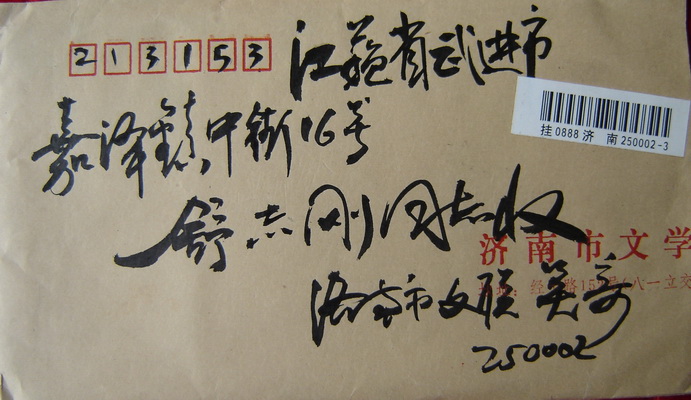 213153
江苏省武进市
嘉泽镇中街16号
舒志刚同志收
挂0888济 南250002-3
济南市文学
济南市文联
250002